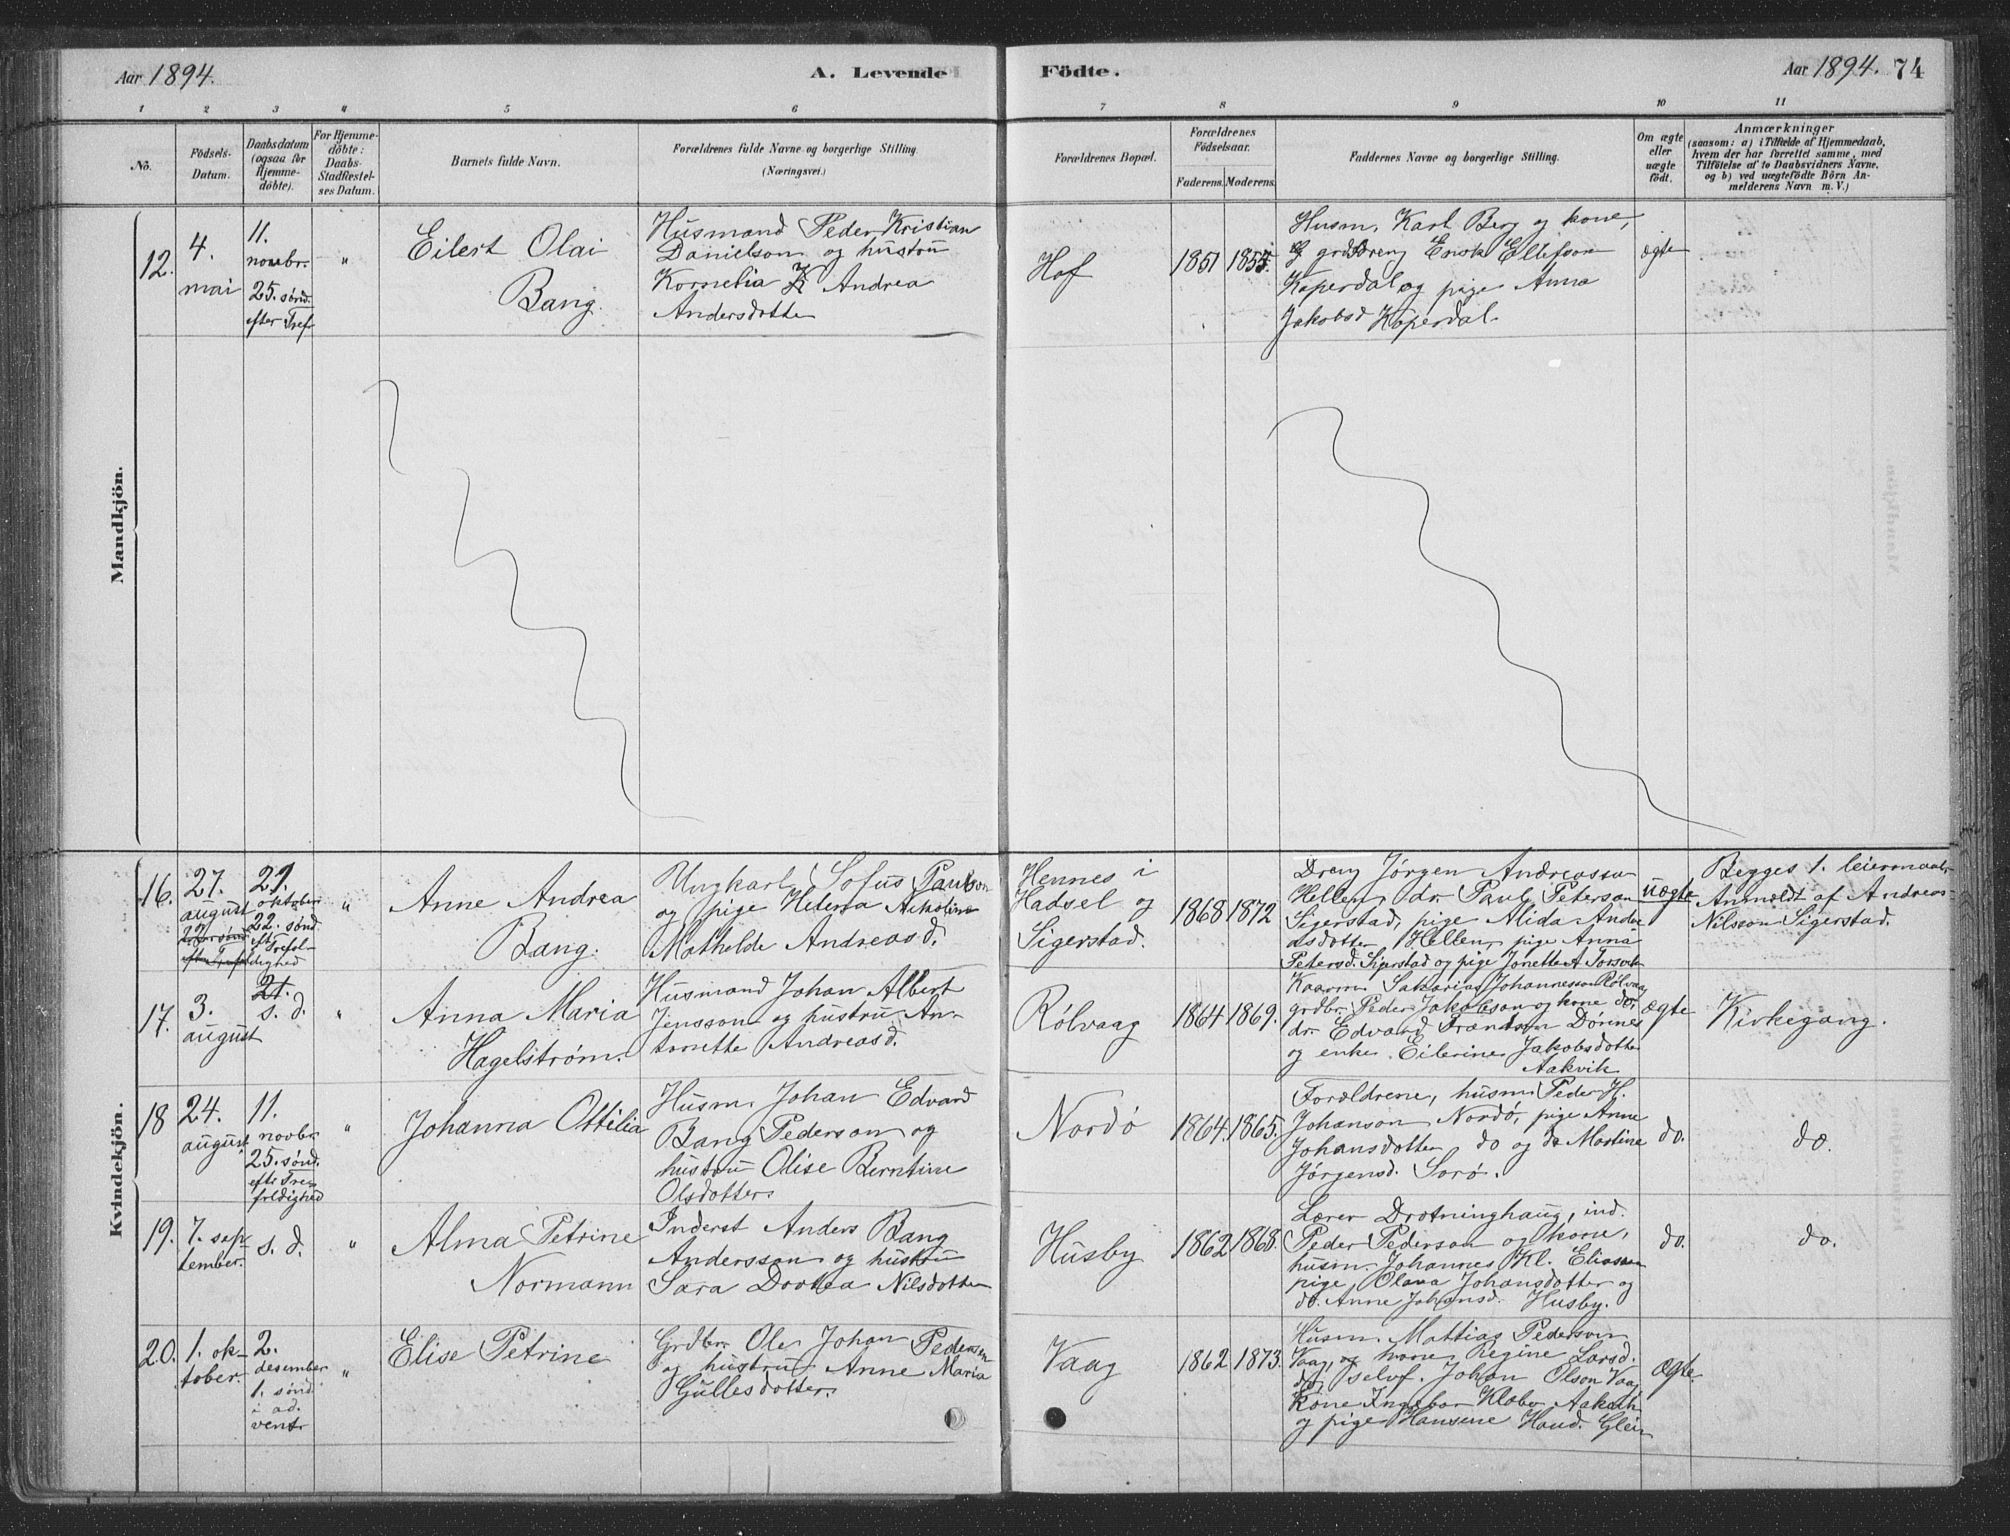 Aar 1894.
A. Levende
Födte.
Aar 1894. 74
1 2 3 4 5 6 7 8 9 10 11
No.
Födsels-
Datum.
Daabsdatum
(ogsaa for
Hjemme-
döbte).
For Hjemme-
döbte:
Daabs-
Stadfestel-
ses Datum.
Barnets fulde Navn.
Forældrenes fulde Navne og borgerlige Stilling.
(Næringsvei.)
Forældrenes Bopæl.
Forældrenes
Födselsaar.
Faderens. Moderens.
Faddernes Navne og borgerlige Stilling.
Om ægte
eller
uægte
födt.
Anmærkninger
(saasom: a) i Tilfælde af Hjemmedaab,
hvem der har forrettet samme, med
Tilföielse af to Daabsvidners Navne,
og b) ved uægtefödte Börn An-
melderens Navn m. V.)
Mandkjön.
12.
4.
mai
11.
novbr.
25. sönd.
efter Tref
"
Eilert Olai
Bang
Husmand Peder Kristian
Danielson og hustru
Kornelia Andrea
Andersdotter
Hof
1851
1855.
Husm. Karl Berg og kone,
Enok Ellefson
Koperdal og pige Anna
Jakobsd Koperdal.
ægte
Kvindekjön.
16.
27.
august
21.
oktober
22. sönd.
eft. Trefol-
dighed
"
Anne Andrea
Bang.
Ungkarl Sofus Paulson
og pige Helena
Mathilde Andreasd.
Hennes i
Hadsel og
Sigerstad.
1868
1872
Dreng Jørgen Andreassen
Hellen, dr. Paul Peterson
Sigerstad, pige Alida Andre
asdotter Hellen, pige Anna
Petersd. Sigerstad og pige Jonette A Torsvik
uægte
Begges 1. leiermaal.
Anmeldt af Andreas
Nilsson Sigerstad.
17.
3.
august
21.
s. d.
"
Anna Maria
Hagelström.
Husmand Johan Albert
Jensson og hustru An-
tonette Andreasd.
Rölvaag
1864
1869.
Kaarm. Sakarias Johannesson Rölvaag
grdbr. Peder Jakobson og kone do,
dr. Edvard Frantson Dönnes
og enke Eilerine Jakobsdotter
Aakvik
ægte
Kirkegang.
18
24.
august
11.
novbr.
25. sönd.
eft. Tre-
foldighed
"
Johanna Ottilia
Husm. Johan Edvard
Bang Pederson og
hustru Olise Berntine
Olsdotter
Nordö
1864.
1865.
Forældrene, husm. Peder H.
Johanson Nordö, pige Anne
Johansdotter do og do Martine
Jörgensd. Sorö.
do.
do.
19.
7. sep-
tember.
s. d.
"
Alma Petrine
Normann
Inderst Anders Bang
Andersson og hustru
Sara Dortea Nilsdotter
Husby
1862
1868.
Lærer Drotninghaug, ind.
Peder Pederson og kone,
husm. Johannes Kl. Eliassen
pige Olava Johansdotter og
do. Anne Johansd. Husby.
do.
do.
20.
1. ok-
tober.
2.
desember
1. sönd.
i ad-
vent.
"
Elise Petrine
Grdbr. Ole Johan Pedersen
og hustru Anne Maria
Gullesdotter.
Vaag
1862
1873.
Husm. Mattias Pederson
Vaag, og kone Regine Larsd.
do, selvf. Johan Olson Vaag
Kone Ingebor Klabo Aakvik
og pige Hansine Glein
ægte.